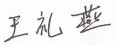 王礼燕